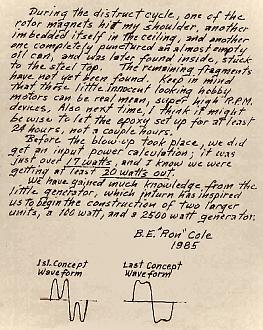 During the distruct cycle, one of the
rotor magnets hit my shoulder, another
imbedded itself in the ceiling, and another
one completely punctured an almost empty
oil can, and was later found inside, stuck
to the steel top. The remaining fragments
have not yet been found. Keep in mind
that these little innocent looking hobby
motors can be real mean, super high R.P.M.
devices. Also next time, I think it might
be wise to let the epoxy set up for at least
24 hours, not a couple hours.
Before the blow-up took place, we did
get an input power calculation; it was
just over 17 watts, and I know we were
getting at least 20 watts out.
We have gained much knowledge from the
little generator, which inturn has inspired
us to begin the construction of two larger
units, a 100 watt, and a 2500 watt generator.
B.E. "Ron" Cole
1985
1st. Concept
Waveform
Last Concept
Waveform